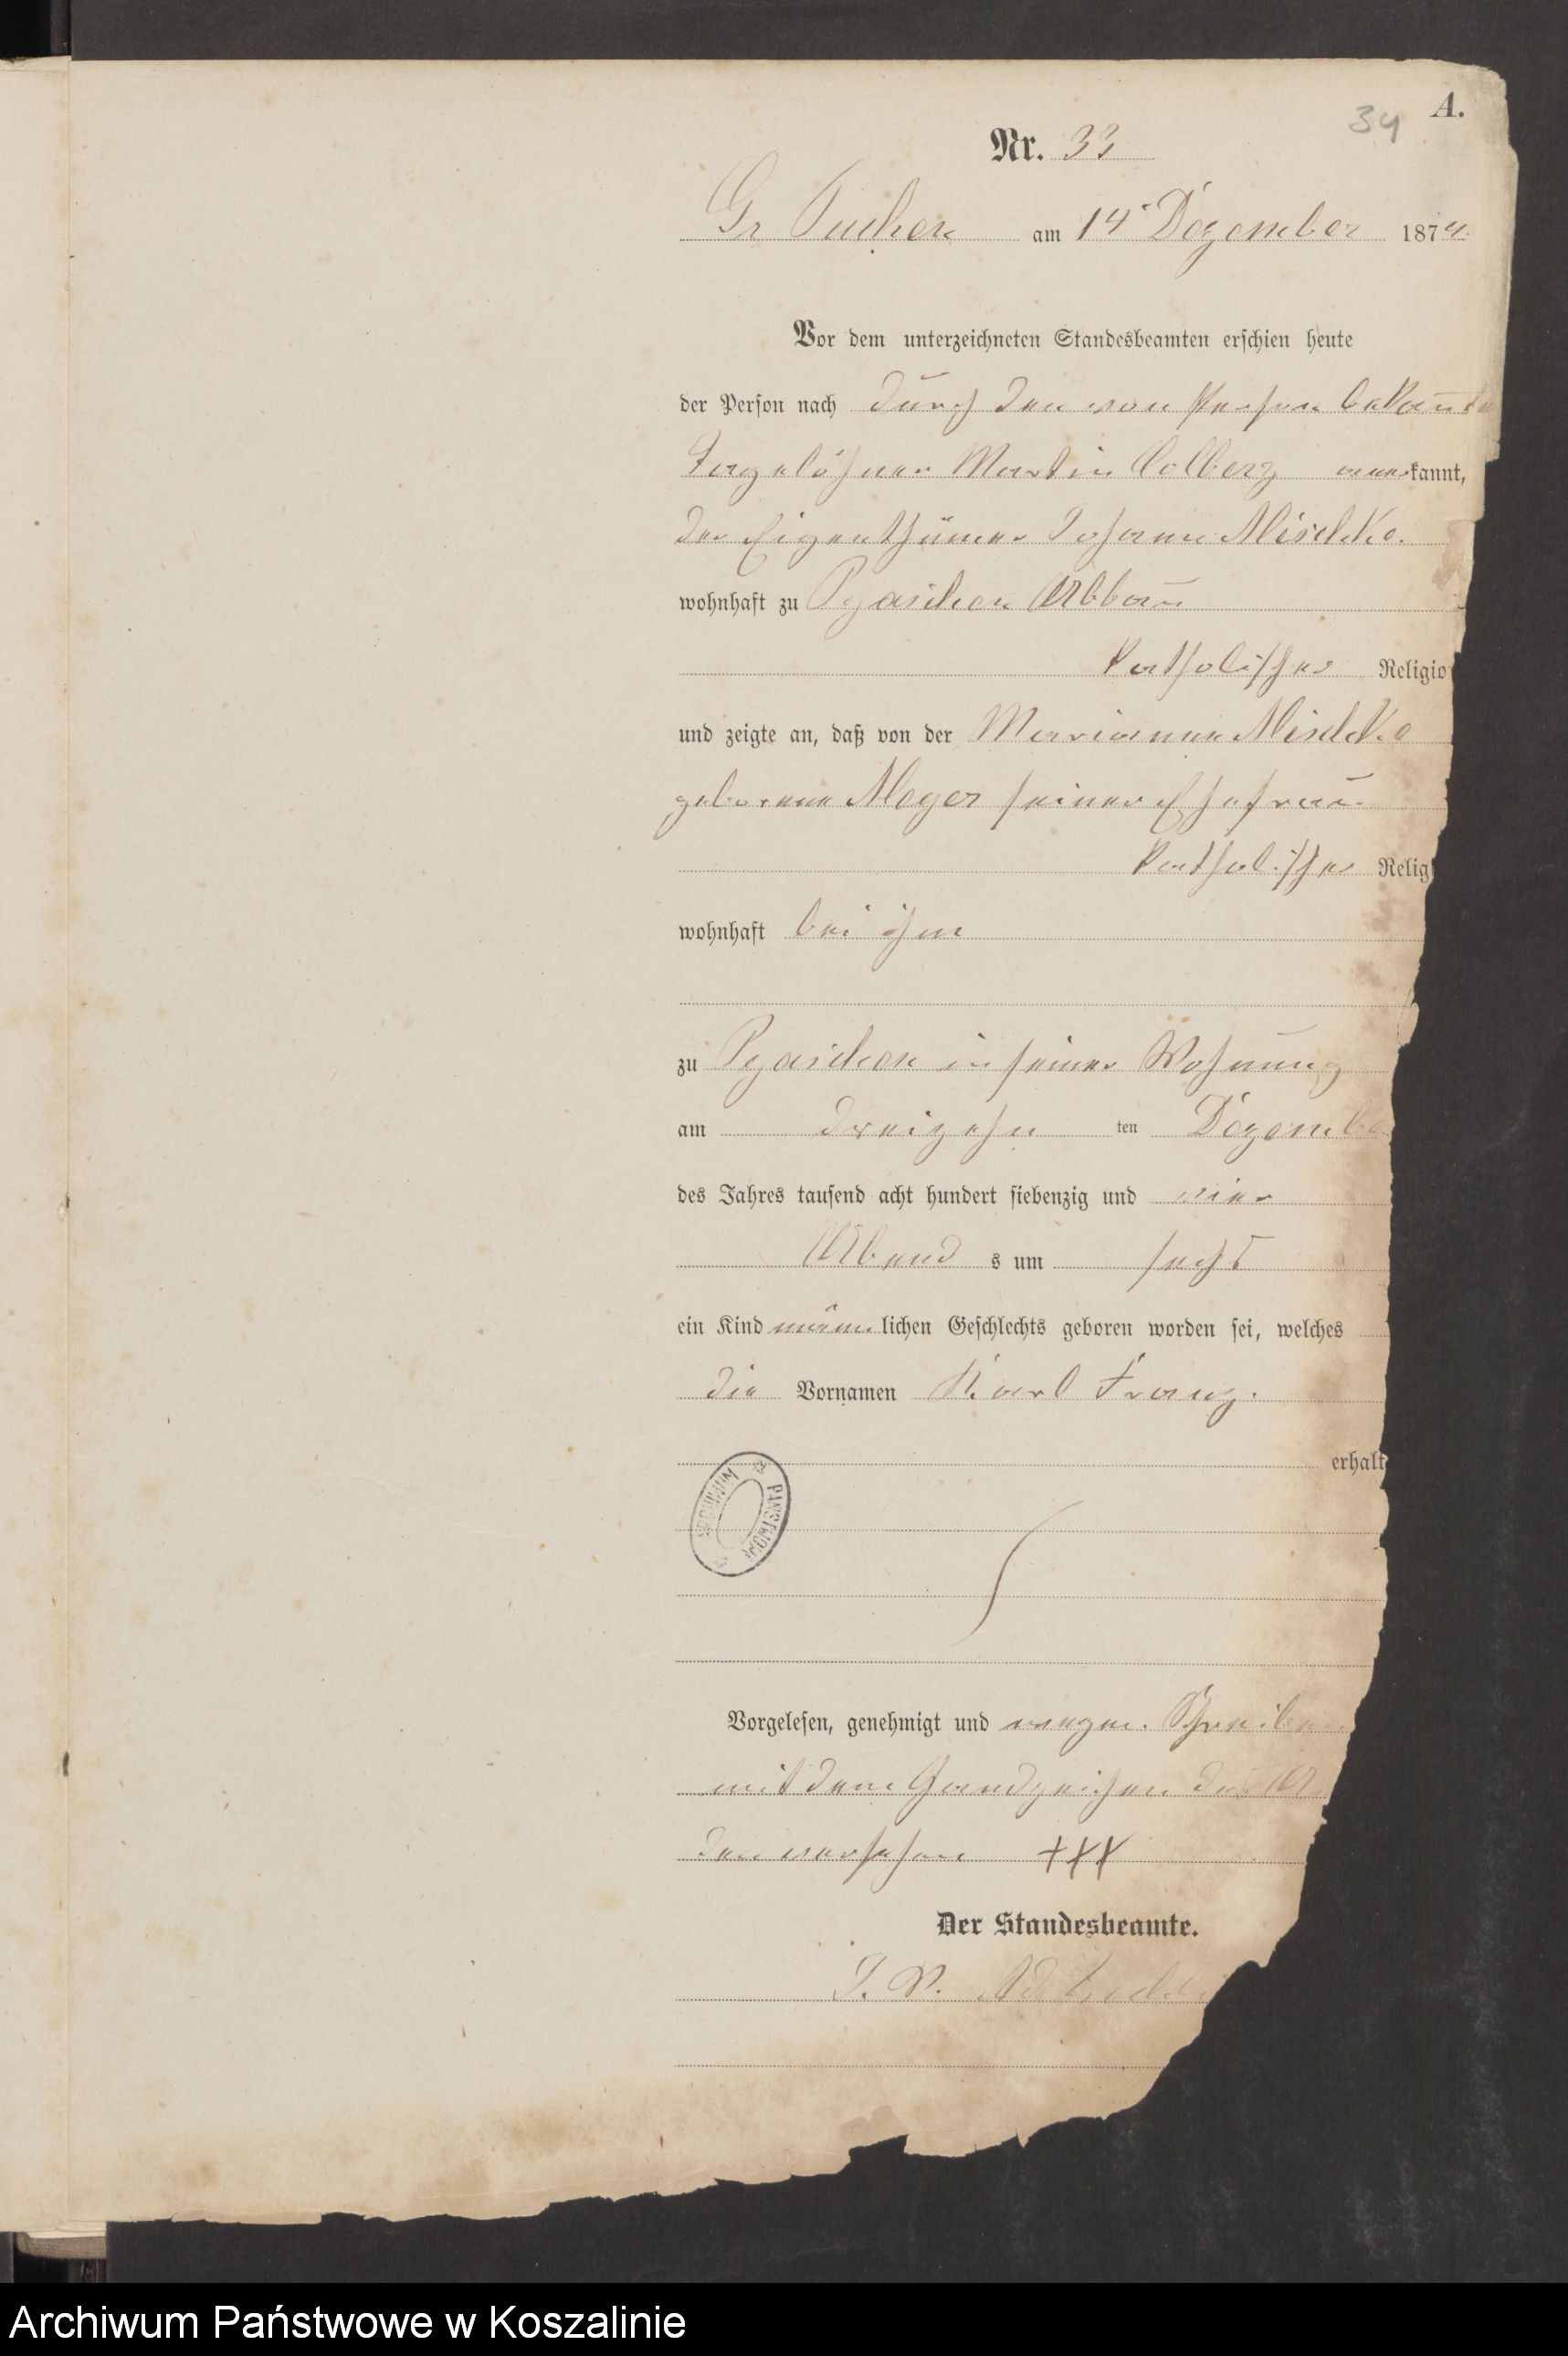 34 A.
Nr. 33
Gr Tuchen am 14 Dezember 1874.
Vor dem unterzeichneten Standesbeamten erschien heute
der Person nach durch den von Person bekannten
Tagelöhner Martin Colberg anerkannt,
der Eigenthümer Johann Mischke.
wohnhaft zu Pyaschen Abbau
katholischer Religio
und zeigte an, daß von der Marianne Mischke
geborene Meyer seiner Ehefrau
katholischer Relig
wohnhaft bei ihm
zu Pyaschen in seiner Wohnung
am dreizehn ten Dezembe
des Jahres tausend acht hundert siebenzig und vier
Abend s um sechs
ein Kind männ lichen Geschlechts geboren worden sei, welches
die Vornamen Karl Franz.
erhalt
ARCHIWUM PAŃSTWOWE
Vorgelesen, genehmigt und wegen Schreiben
mit dem Handzeichen des
den versehen +++
Der Standesbeamte.
J. V.
Archiwum Państwowe w Koszalinie